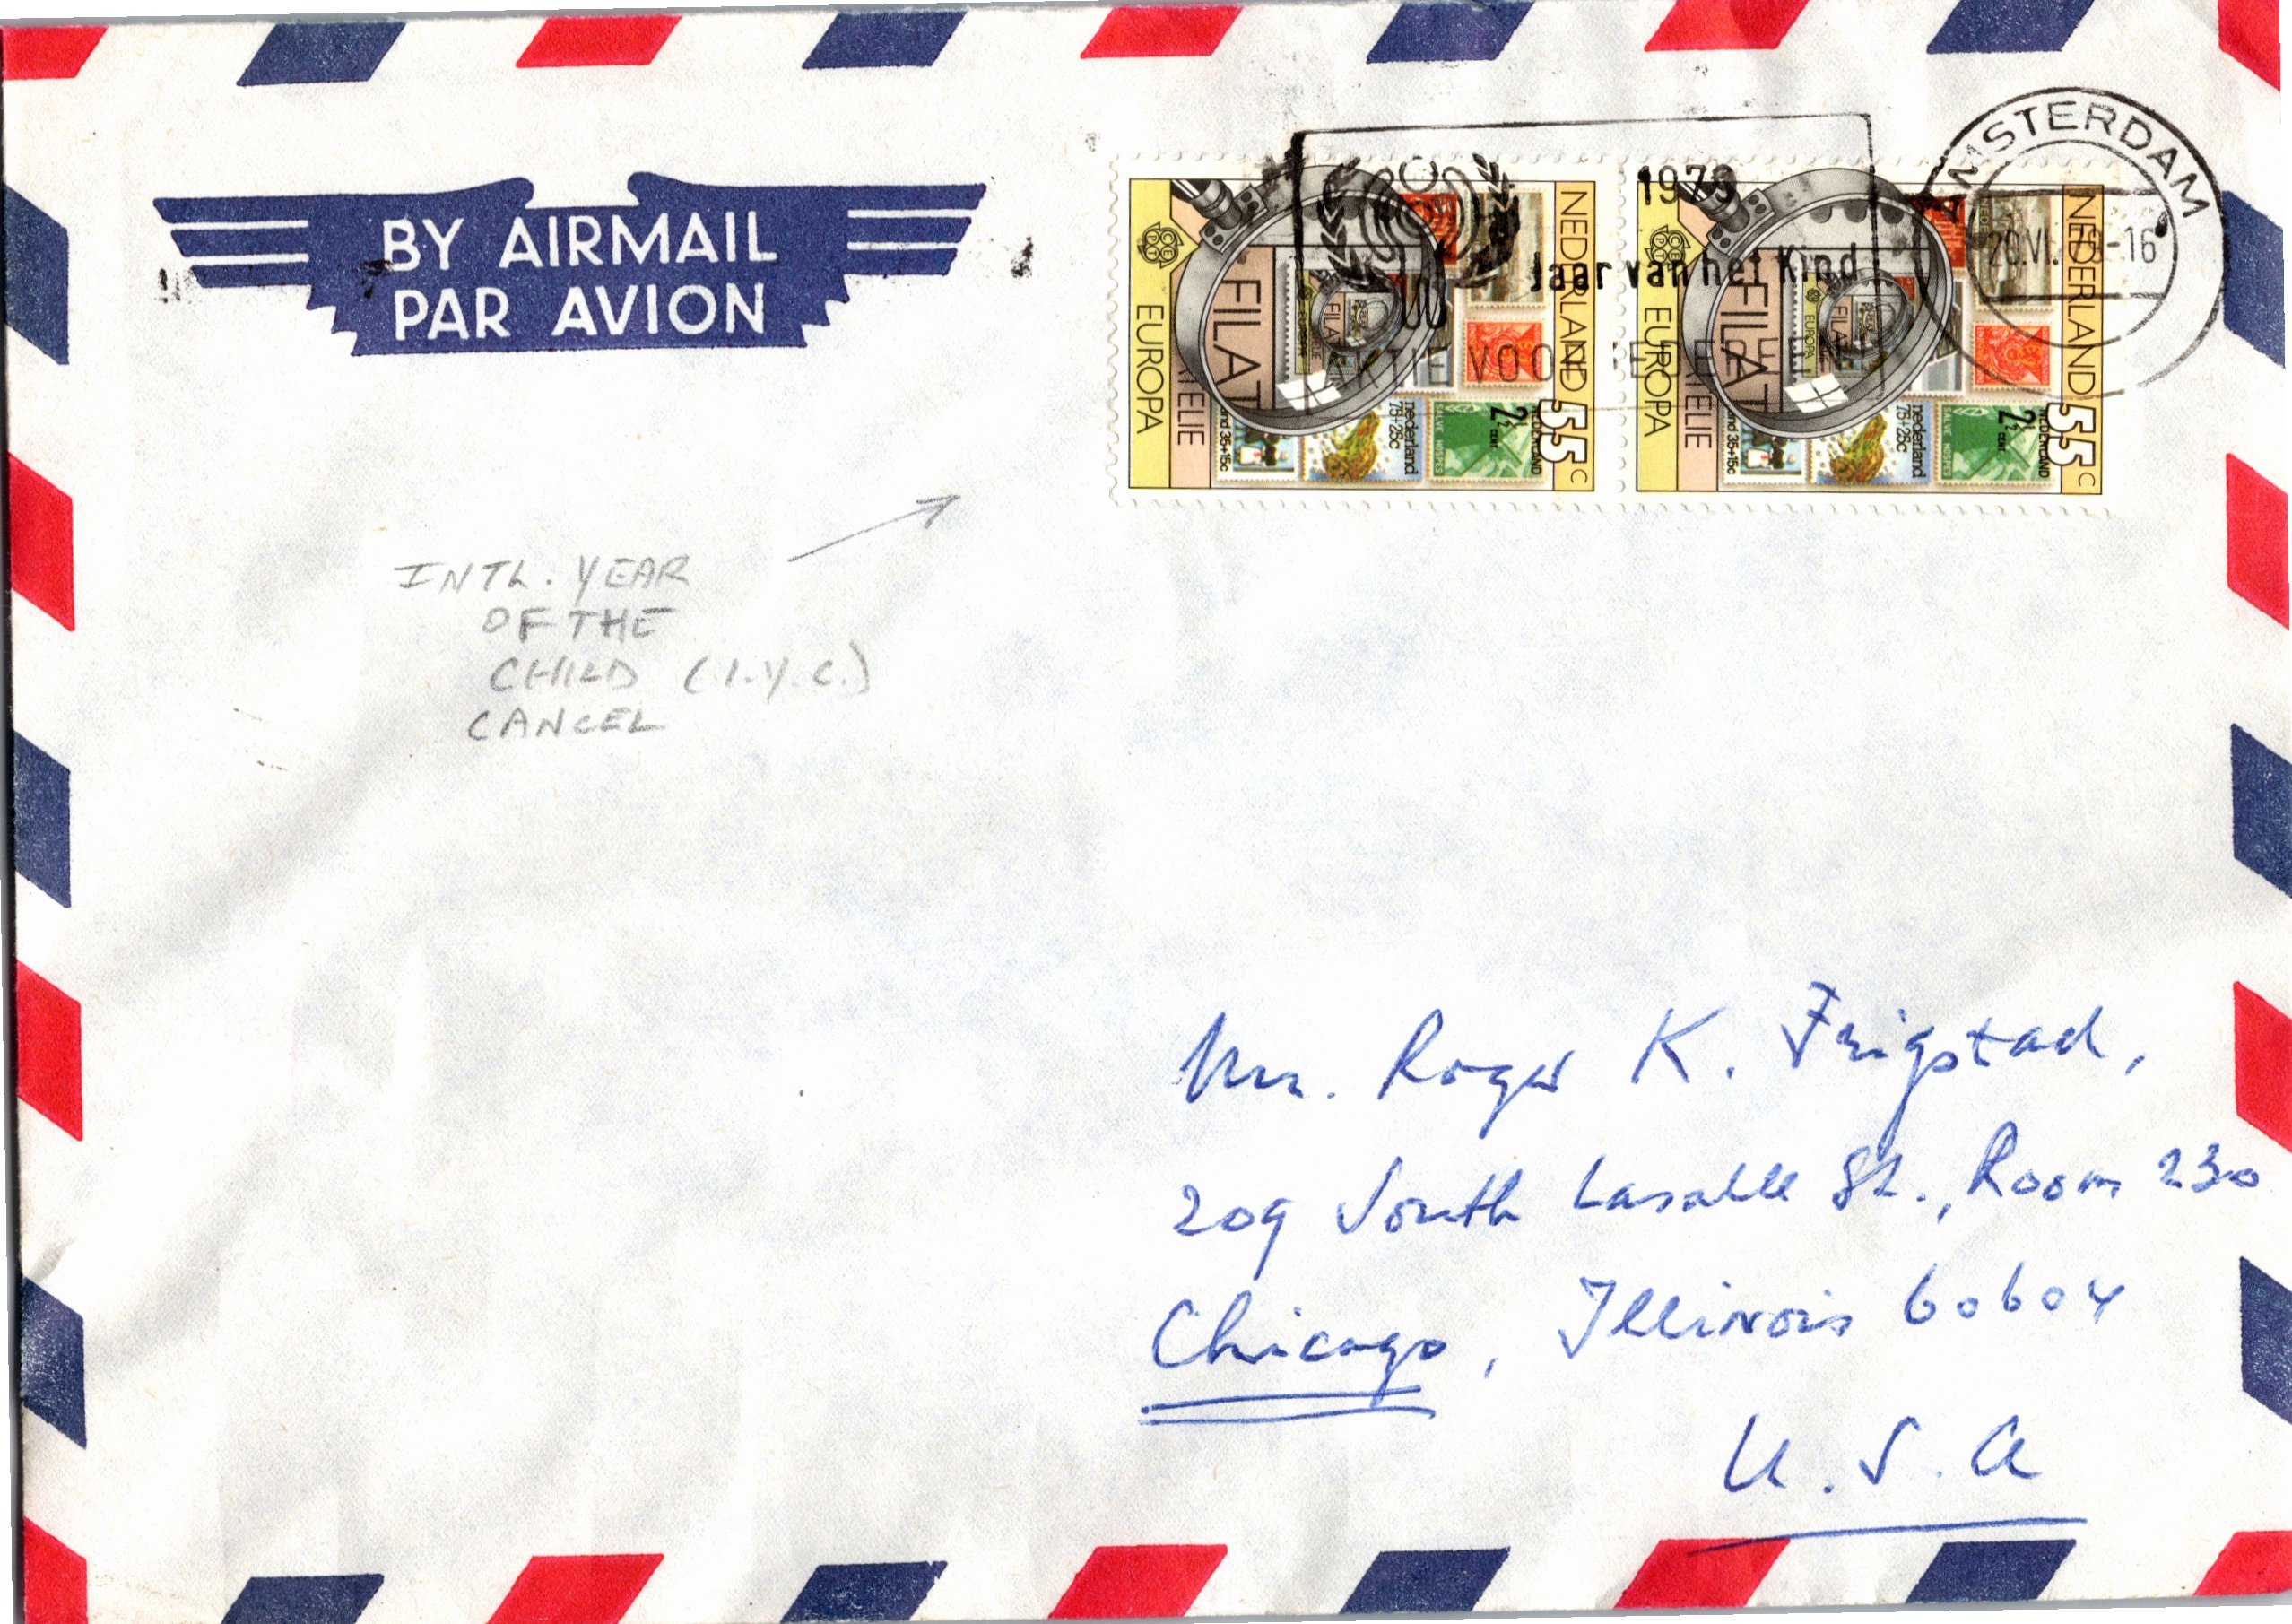 BY AIRMAIL
PAR AVION
AMSTERDAM
1979
Jaar van het Kind
AKTIE VOOR IEDEREEN
NEDERLAND 55c
EUROPA
FILATELIE
CEPT
nederland
75+25c
NEDERLAND
2½
CENT
35+15c
NEDERLAND 55c
EUROPA
FILATELIE
CEPT
nederland
75+25c
NEDERLAND
2½
CENT
35+15c
INTL. YEAR
OF THE
CHILD (I.Y.C.)
CANCEL
Mr. Roger K. Frigstad,
209 South Lasalle St., Room 230
Chicago, Illinois 60604
U.S.A